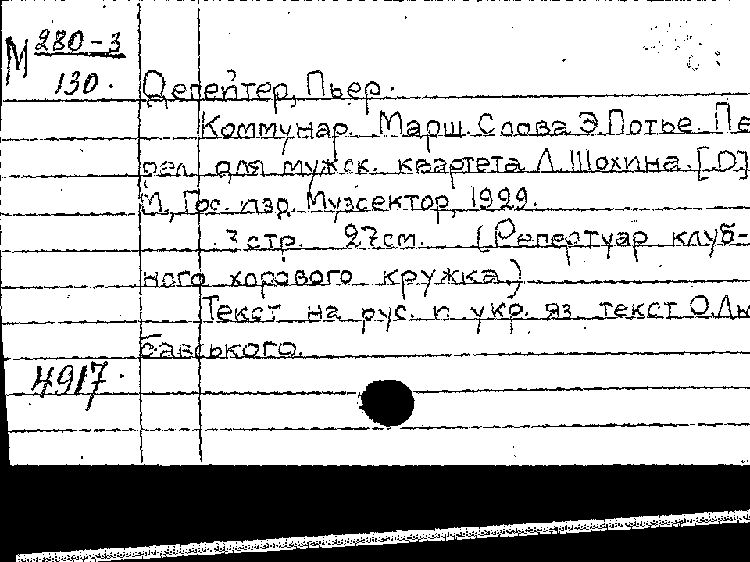 М 280-3
130.
Дегейтер, Пьер.
Коммунар. Марш. Слова Э. Потье. Пе
рел. для мужск. квартета Л. Шохина. [D]
М., Гос. изд. Музсектор, 1929.
3 стр. 27 см. (Репертуар клуб-
ного хорового кружка.)
Текст на рус. и укр. яз. текст О. Лю
бавського.
4917.